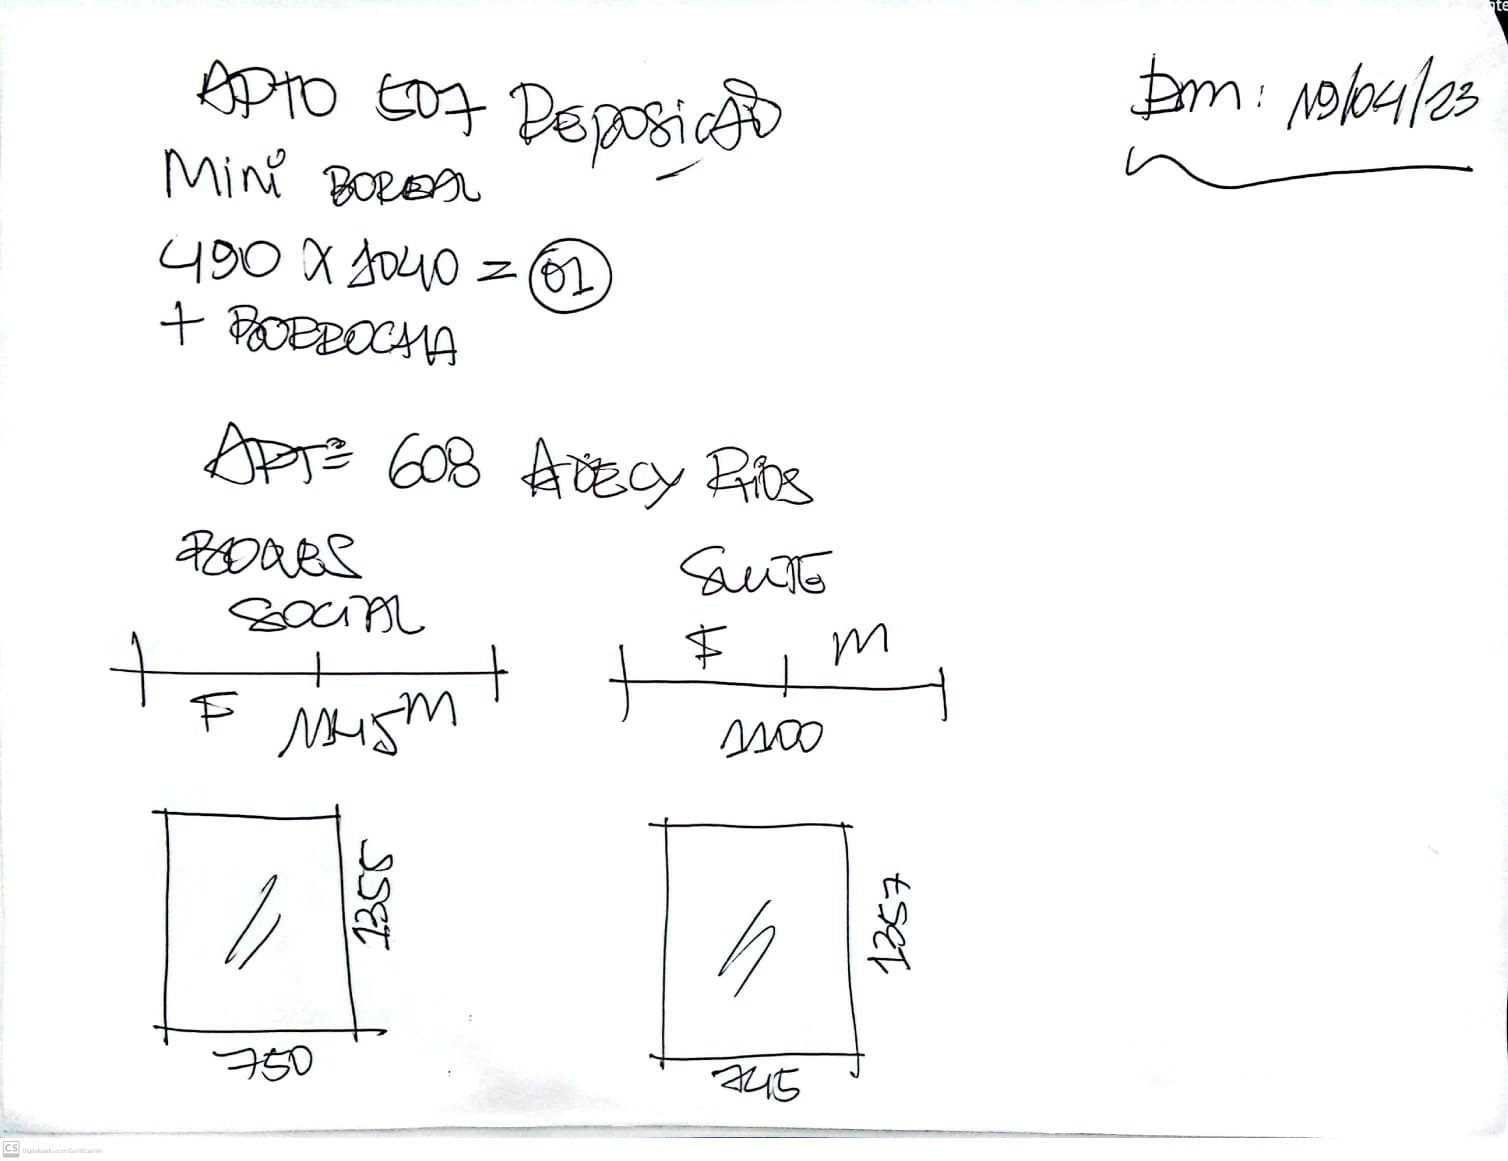 APTO 507 REPOSIÇÃO
Em: 19/04/23
MINI BOREAL
490 X 1040 = 01
+ BORROCHA
APTº 608 ADECY RIOS
BOXES
SOCIAL
SUITE
F M
F 1145 M
1100
1355
1357
750
745
CS Digitalizado com CamScanner